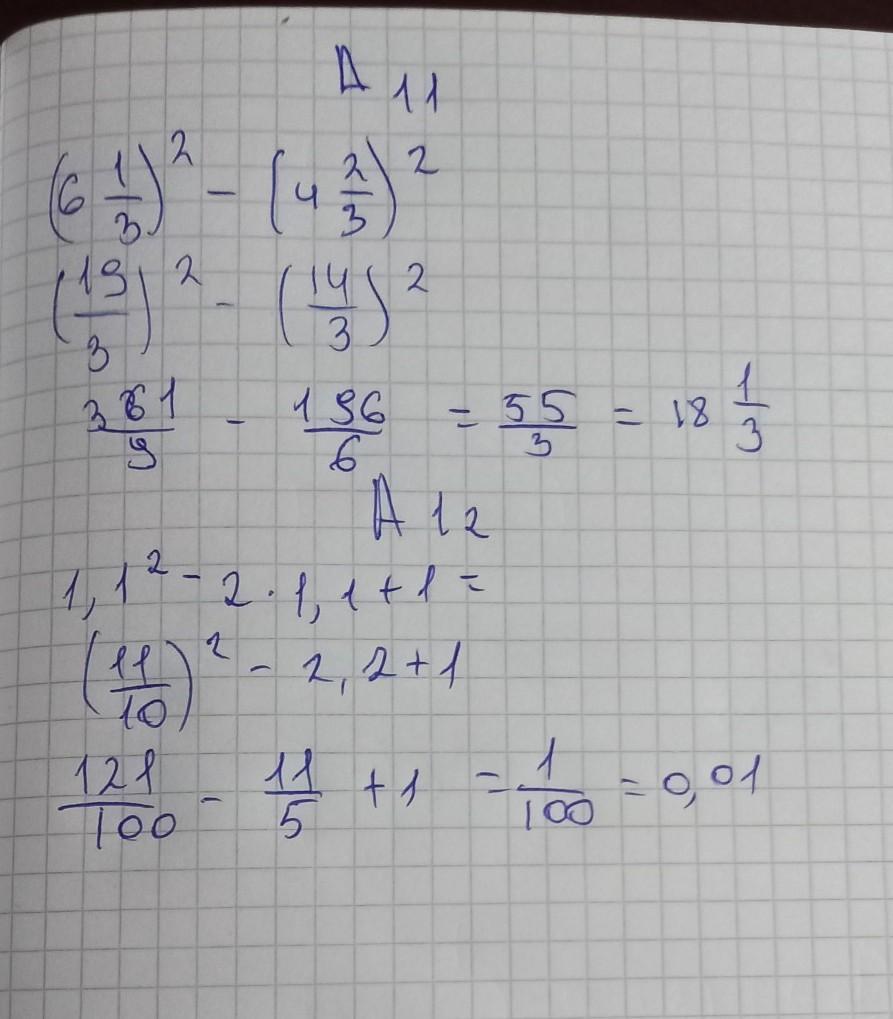 A 11
(6 1/3)² - (4 2/3)²
(19/3)² - (14/3)²
361/9 - 196/6 = 55/3 = 18 1/3
A 12
1,1² - 2 · 1,1 + 1 =
(11/10)² - 2,2 + 1
121/100 - 11/5 + 1 = 1/100 = 0,01